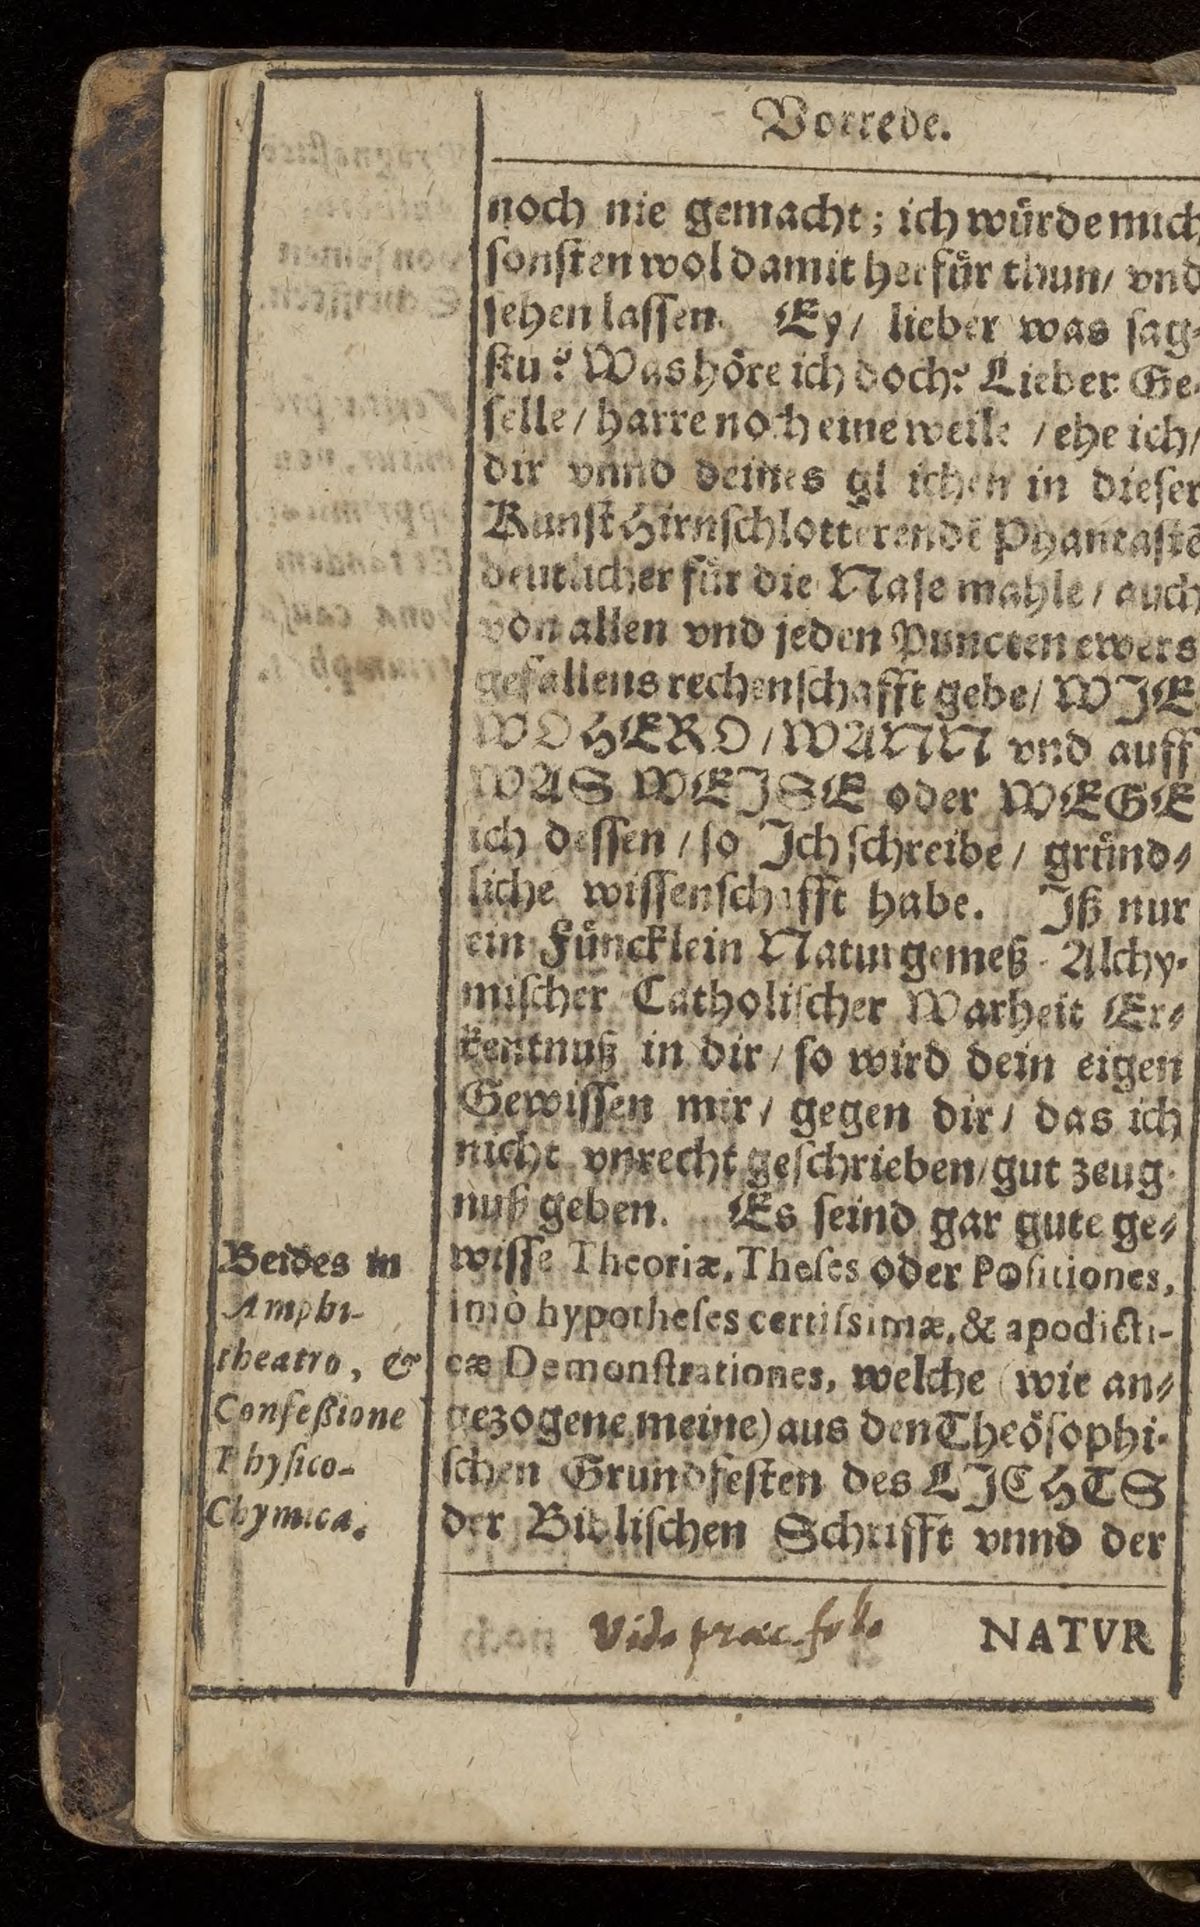 Vorrede.
noch nie gemacht; ich würde mich
sonsten wol damit herfür thun/ vnd
sehen lassen. Ey/ lieber was sag-
stu? Was höre ich doch? Lieber Ge-
selle/ harre noch eine weile / ehe ich/
dir vnnd deines gl ichen in dieser
Kunst Hirnschlotterende Phantaste
deutlicher für die Nase mahle/ auch
von allen vnd jeden Puncten ewers
gefallens rechenschafft gebe/ WJE
WOHERO/ WANN vnd auff
WAS WEJSE oder WEGE
ich dessen/ so Jch schreibe/ gründ-
liche wissenschafft habe. Jß nur
ein Füncklein Naturgemeß-Alchy-
mischer Catholischer Warheit Er-
kentnuß in dir/ so wird dein eigen
Gewissen mir/ gegen dir/ das ich
nicht vnrecht geschrieben/ gut zeug-
nuß geben. Es seind gar gute ge-
wisse Theoriæ, Theses oder Positiones,
imò hypotheses certissimæ, & apodicti-
cæ Demonstrationes, welche (wie an-
gezogene meine) aus den Theösophi-
schen Grundfesten des LJCHTS
der Biblischen Schrifft vnnd der
Beides in
Amphi-
theatro, &
Confeßione
Physico-
Chymica.
Vide præc.
NATVR